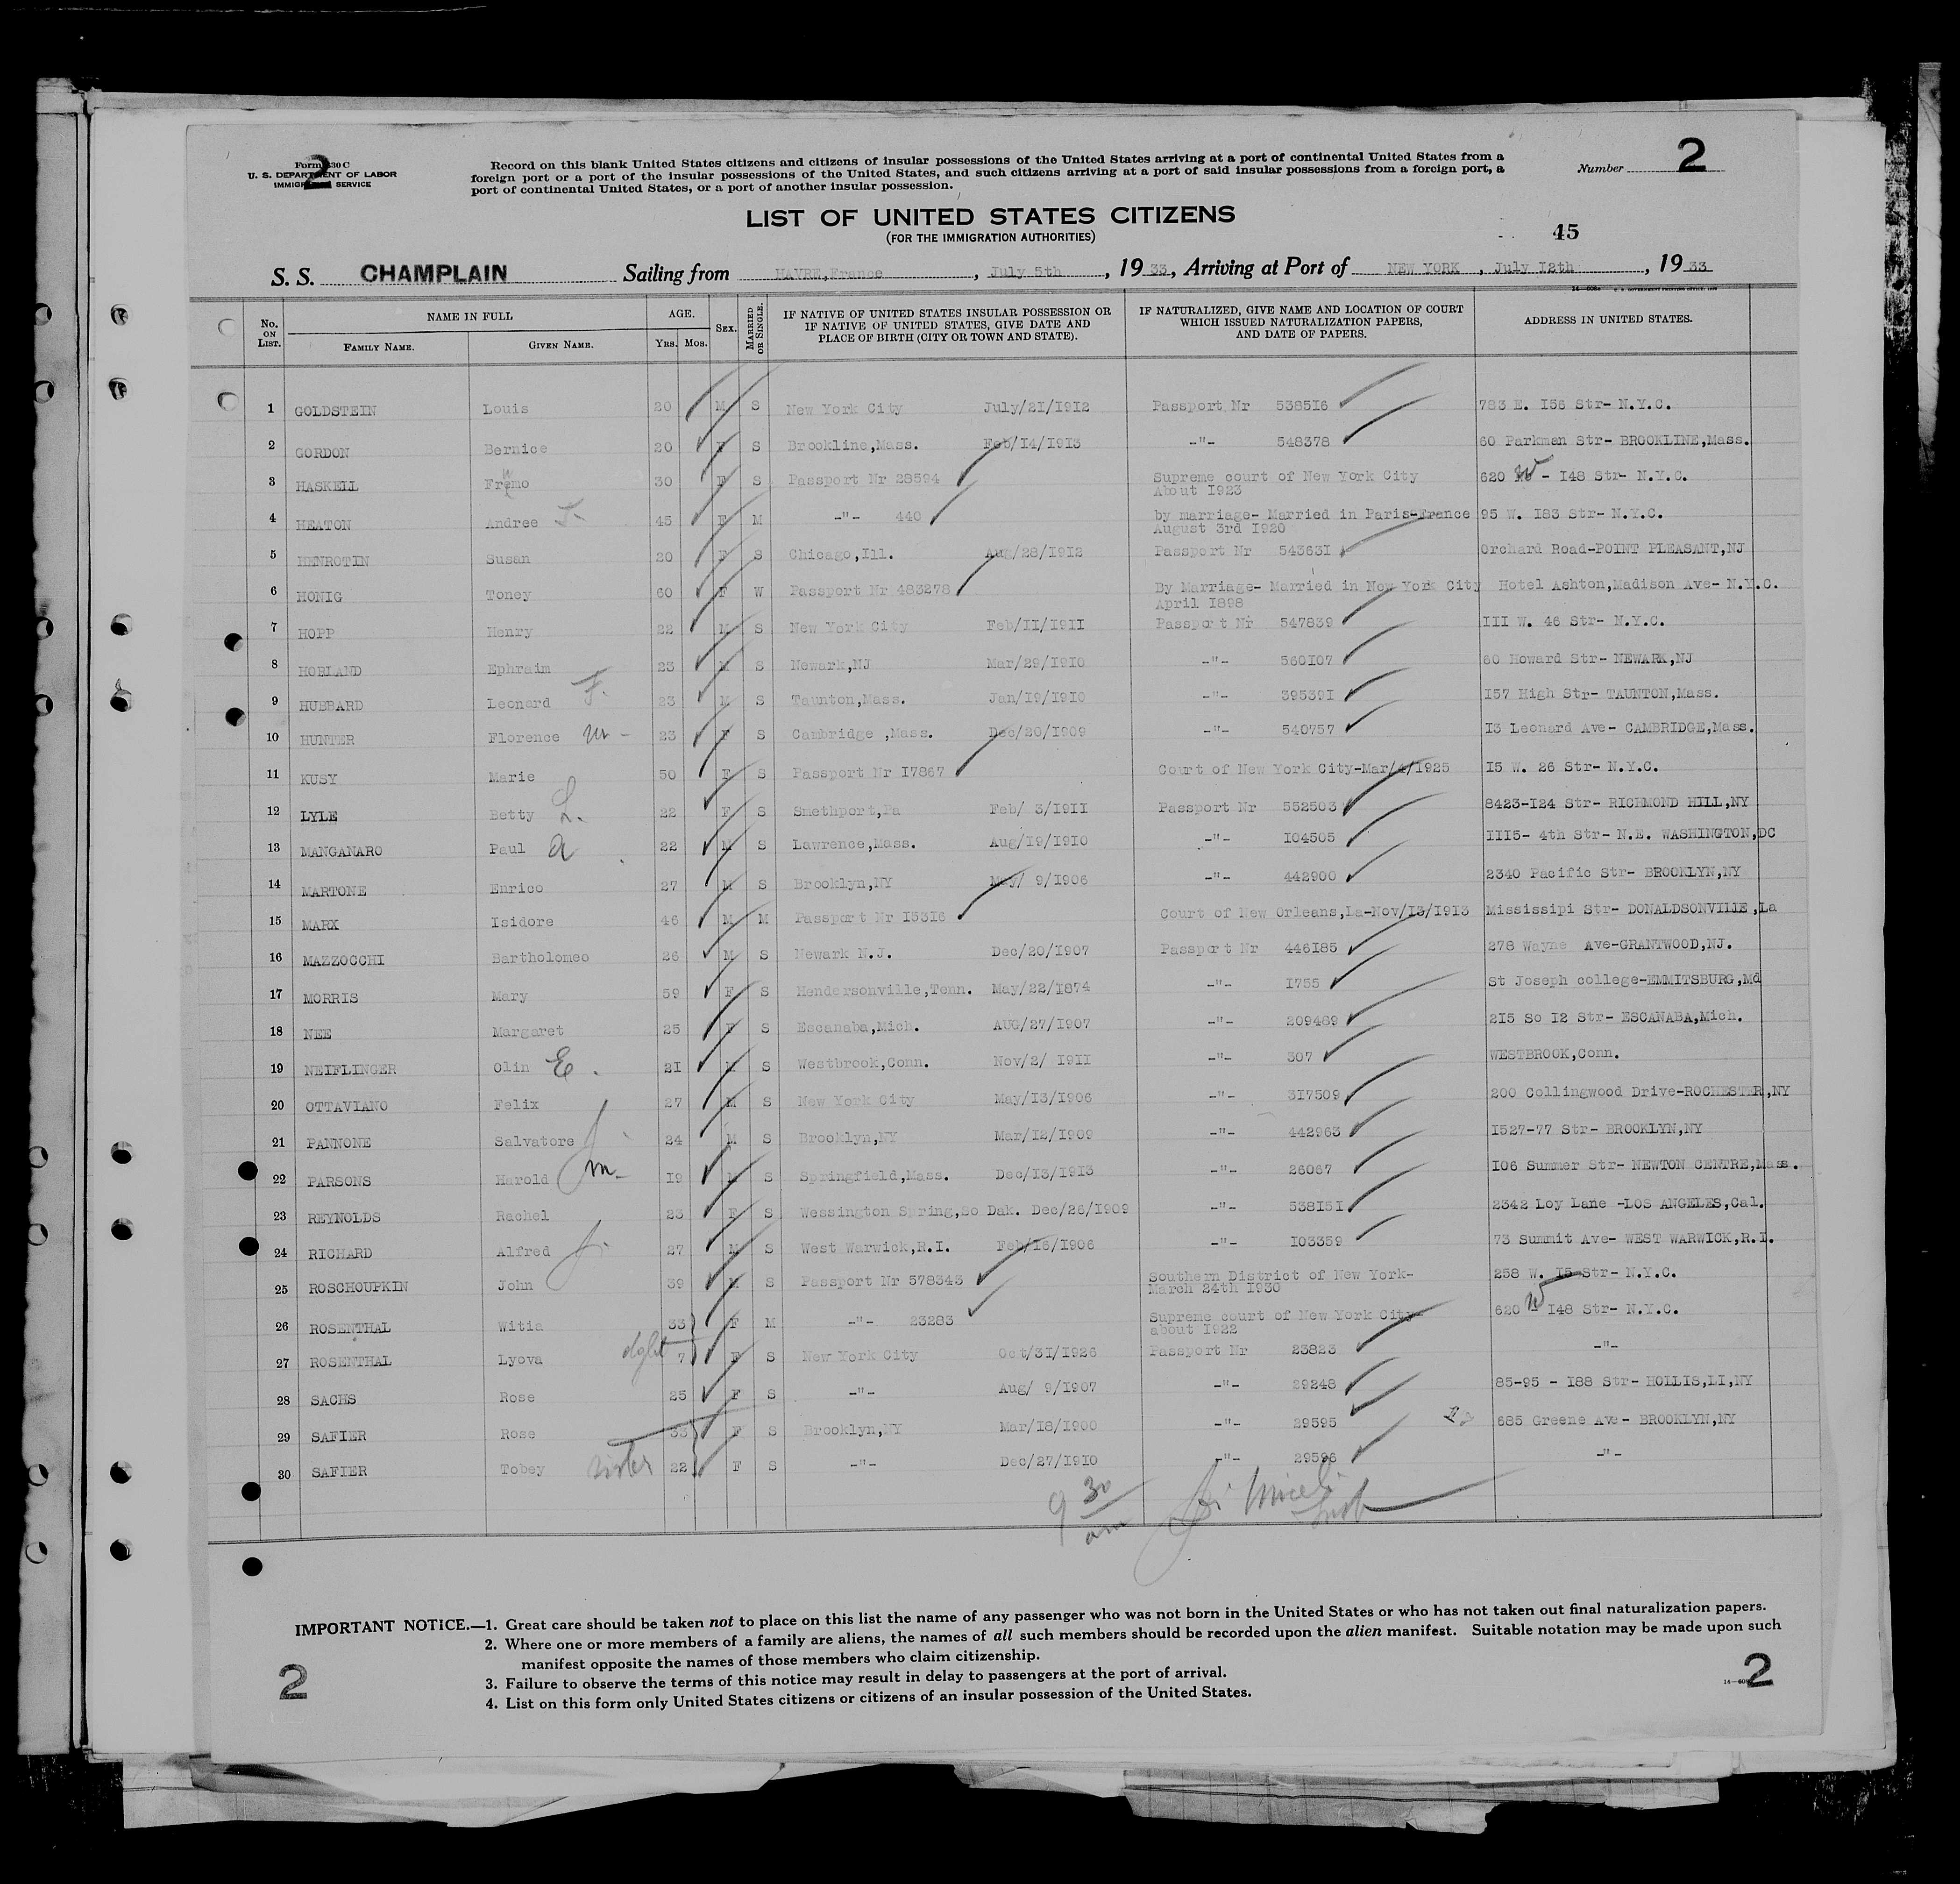 2
Form 630 C
U. S. DEPARTMENT OF LABOR
IMMIGRATION SERVICE
Record on this blank United States citizens and citizens of insular possessions of the United States arriving at a port of continental United States from a
foreign port or a port of the insular possessions of the United States, and such citizens arriving at a port of said insular possessions from a foreign port, a
port of continental United States, or a port of another insular possession.
Number 2
LIST OF UNITED STATES CITIZENS
(FOR THE IMMIGRATION AUTHORITIES)
45
S. S. CHAMPLAIN Sailing from HAVRE,France , July 5th , 19 33, Arriving at Port of NEW YORK , July I2th , 19 33
No. ON LIST. NAME IN FULL FAMILY NAME. GIVEN NAME. AGE. Yrs. Mos. SEX. MARRIED OR SINGLE. IF NATIVE OF UNITED STATES INSULAR POSSESSION OR IF NATIVE OF UNITED STATES, GIVE DATE AND PLACE OF BIRTH (CITY OR TOWN AND STATE). IF NATURALIZED, GIVE NAME AND LOCATION OF COURT WHICH ISSUED NATURALIZATION PAPERS, AND DATE OF PAPERS. ADDRESS IN UNITED STATES.
1 GOLDSTEIN Louis 20 M S New York City July/2I/I9I2 Passport Nr 5385I6 783 E. I56 Str- N.Y.C.
2 GORDON Bernice 20 F S Brookline,Mass. Feb/I4/I9I3 -"- 548378 60 Parkman Str- BROOKLINE,Mass.
3 HASKELL Fremo 30 F S Passport Nr 28594 Supreme court of New York City About I923 620 W - I48 Str- N.Y.C.
4 HEATON Andree 45 F M -"- 440 by marriage- Married in Paris-France August 3rd I920 95 W. I83 Str- N.Y.C.
5 HENROTIN Susan 20 F S Chicago,Ill. Aug/28/I912 Passport Nr 54363I Orchard Road-POINT PLEASANT,NJ
6 HONIG Toney 60 F W Passport Nr 483278 By Marriage- Married in New York City April I898 Hotel Ashton,Madison Ave- N.Y.C.
7 HOPP Henry 22 M S New York City Feb/II/I9II Passport Nr 547839 III W. 46 Str- N.Y.C.
8 HORLAND Ephraim 23 M S Newark,NJ Mar/29/I9I0 -"- 560I07 80 Howard Str- NEWARK,NJ
9 HUBBARD Leonard F. 23 M S Taunton,Mass. Jan/I9/I9I0 -"- 39539I I57 High Str- TAUNTON,Mass.
10 HUNTER Florence M - 23 F S Cambridge ,Mass. Dec/20/I909 -"- 540757 I3 Leonard Ave- CAMBRIDGE,Mass.
11 KUSY Marie 50 F S Passport Nr I7867 Court of New York City-Mar/4/I925 I5 W. 26 Str- N.Y.C.
12 LYLE Betty L. 22 F S Smethport,Pa Feb/ 3/I9II Passport Nr 552503 8423-I24 Str- RICHMOND HILL,NY
13 MANGANARO Paul a 22 M S Lawrence,Mass. Aug/I9/I9I0 -"- I04505 III5- 4th Str- N.E. WASHINGTON,DC
14 MARTONE Enrico 27 M S Brooklyn,NY May/ 9/I906 -"- 442900 2340 Pacific Str- BROOKLYN,NY
15 MARX Isidore 46 M M Passport Nr I53I6 Court of New Orleans,La-Nov/I3/I9I3 Mississipi Str- DONALDSONVILLE,La
16 MAZZOCCHI Bartholomeo 26 M S Newark N.J. Dec/20/I907 Passport Nr 446I85 278 Wayne Ave-GRANTWOOD,NJ.
17 MORRIS Mary 59 F S Hendersonville,Tenn. May/22/I874 -"- I755 St Joseph college-EMMITSBURG,Md
18 NEE Margaret 25 F S Escanaba,Mich. AUG/27/I907 -"- 209489 2I5 So I2 Str- ESCANABA,Mich.
19 NEIFLINGER Olin E. 2I M S Westbrook,Conn. Nov/2/ I9II -"- 307 WESTBROOK,Conn.
20 OTTAVIANO Felix 27 M S New York City May/I3/I906 -"- 3I7509 200 Collingwood Drive-ROCHESTER,NY
21 PANNONE Salvatore J. 24 M S Brooklyn,NY Mar/I2/I909 -"- 442963 I527-77 Str- BROOKLYN,NY
22 PARSONS Harold M- I9 M S Springfield,Mass. Dec/I3/I9I3 -"- 26067 I06 Summer Str- NEWTON CENTRE,Mass.
23 REYNOLDS Rachel 23 F S Wessington Spring,So Dak. Dec/26/I909 -"- 538I5I 2342 Loy Lane -LOS ANGELES,Cal.
24 RICHARD Alfred J. 27 M S West Warwick,R.I. Feb/I6/I906 -"- I03359 73 Summit Ave- WEST WARWICK,R.I.
25 ROSCHOUPKIN John 39 M S Passport Nr 578343 Southern District of New York- March 24th I930 258 W. I5 Str- N.Y.C.
26 ROSENTHAL Witia 33 F M -"- 23283 Supreme court of New York City about I922 620 W I48 Str- N.Y.C.
27 ROSENTHAL Lyova dght 7 F S New York City Oct/3I/I926 Passport Nr 23823 -"-
28 SACHS Rose 25 F S -"- Aug/ 9/I907 -"- 29248 85-95 - I88 Str- HOLLIS,LI,NY
29 SAFIER Rose 33 F S Brooklyn,NY Mar/I8/I900 -"- 29595 685 Greene Ave- BROOKLYN,NY
30 SAFIER Tobey sister 22 F S -"- Dec/27/I9I0 -"- 29596 -"-
9 30 am
IMPORTANT NOTICE.—1. Great care should be taken not to place on this list the name of any passenger who was not born in the United States or who has not taken out final naturalization papers.
2. Where one or more members of a family are aliens, the names of all such members should be recorded upon the alien manifest. Suitable notation may be made upon such
manifest opposite the names of those members who claim citizenship.
3. Failure to observe the terms of this notice may result in delay to passengers at the port of arrival.
4. List on this form only United States citizens or citizens of an insular possession of the United States.
2
2